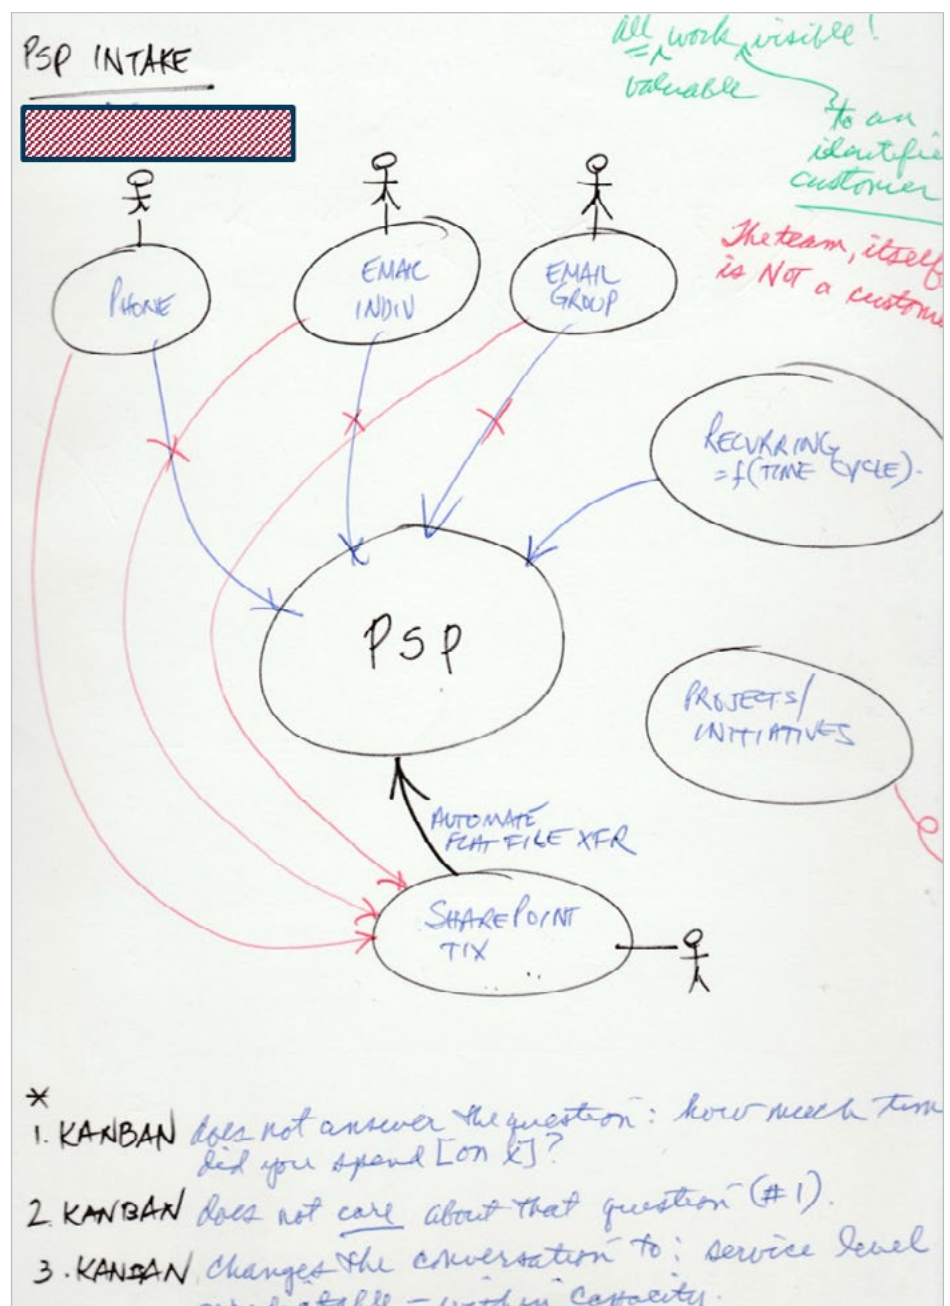 PSP INTAKE
all work visible!
valuable
to an
identifie
customer
The team, itself
is NOT a custome
PHONE
EMAIL
INDIV
EMAIL
GROUP
RECURRING
=f(TIME CYCLE).
PSP
PROJECTS/
INITIATIVES
AUTOMATE
FLAT FILE XFR
SHAREPOINT
TIX
*
1. KANBAN does not answer the question: how much tim
did you spend [on x]?
2. KANBAN does not care about that question (#1).
3. KANBAN changes the conversation to: service level
– within capacity.